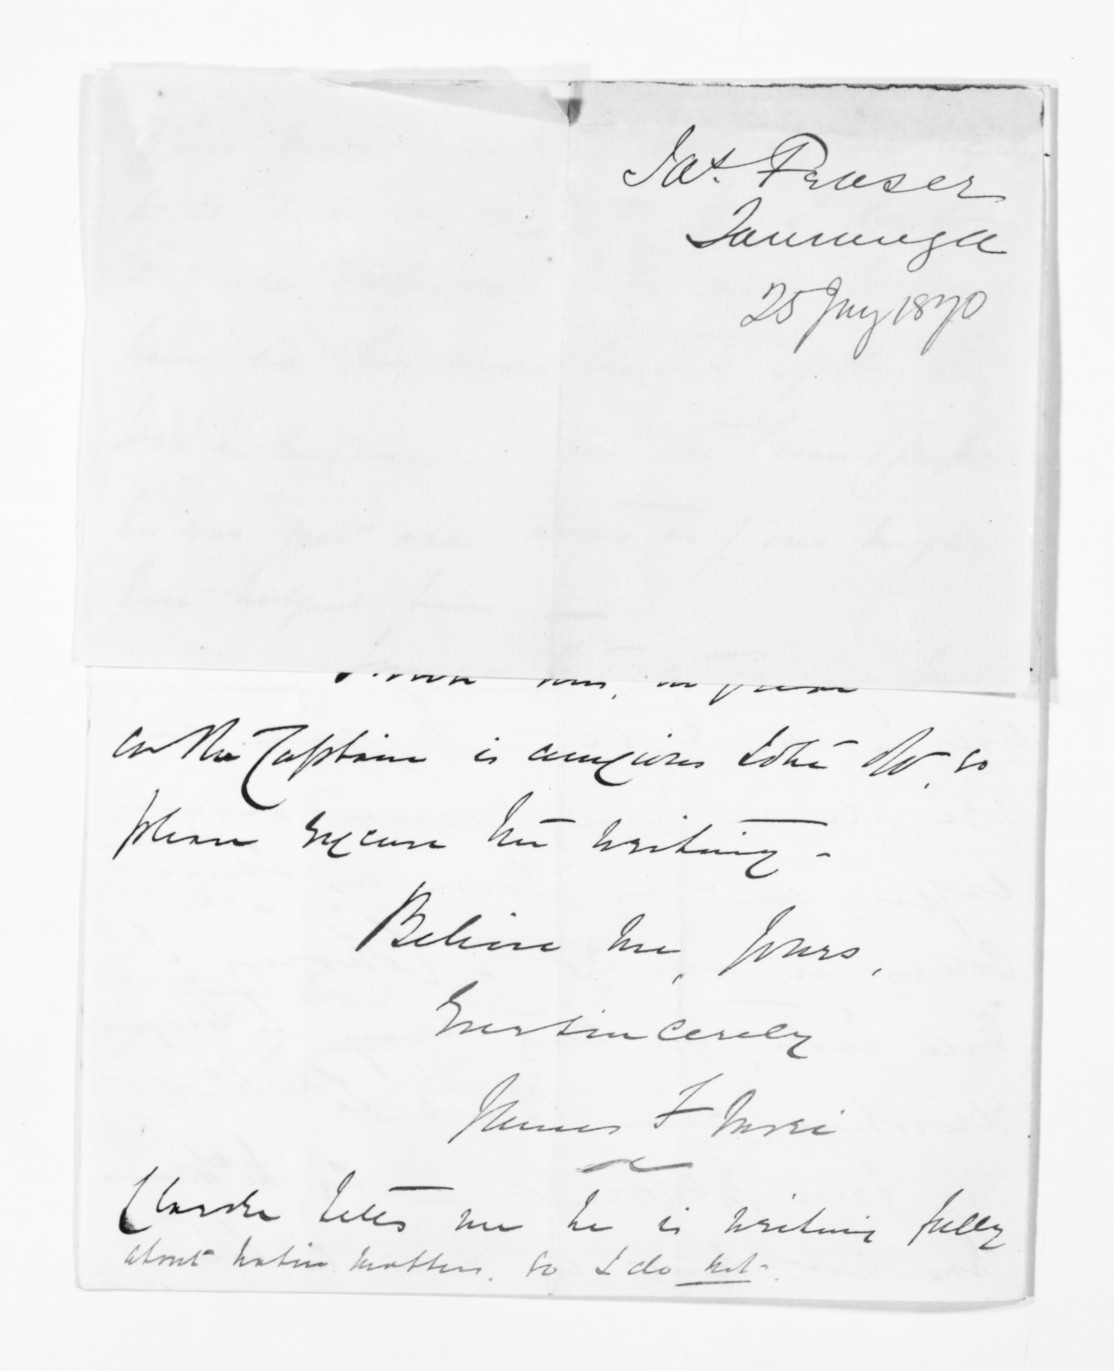 Jas. Fraser
Tauranga
25 Jany 1870
as the Captain is anxious to be off, so
please excuse this writing -
Believe me, Yours,
sincerely
James F
Clarke tells me he is writing fully
about native matters. so I do not.